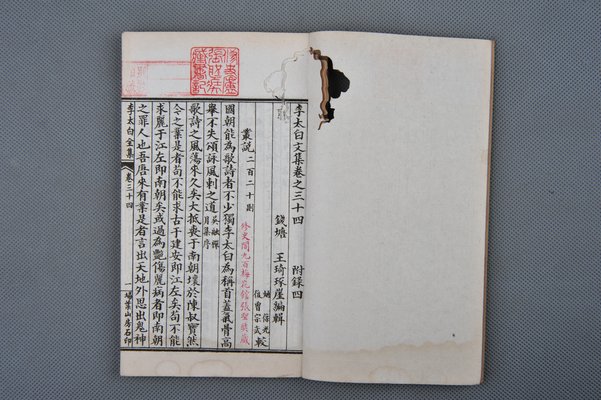 李太白文集卷之三十四　附錄四
錢塘　王琦琢崖編輯
復曾宗武較
叢說　二百二十則
國朝能為歌詩者不少獨李太白為稱首蓋氣骨高
舉不失頌詠風刺之道　吳融禪月集序
歌詩之風蕩來久矣大抵喪于南朝壞於陳叔寶然
今之業是者苟不能求古于建安即江左矣苟不能
求麗于江左即南朝矣或過為艷傷麗病者即南朝
之罪人也吾唐來有業是者言出天地外思出鬼神
李太白全集　卷三十四　一　埽葉山房石印